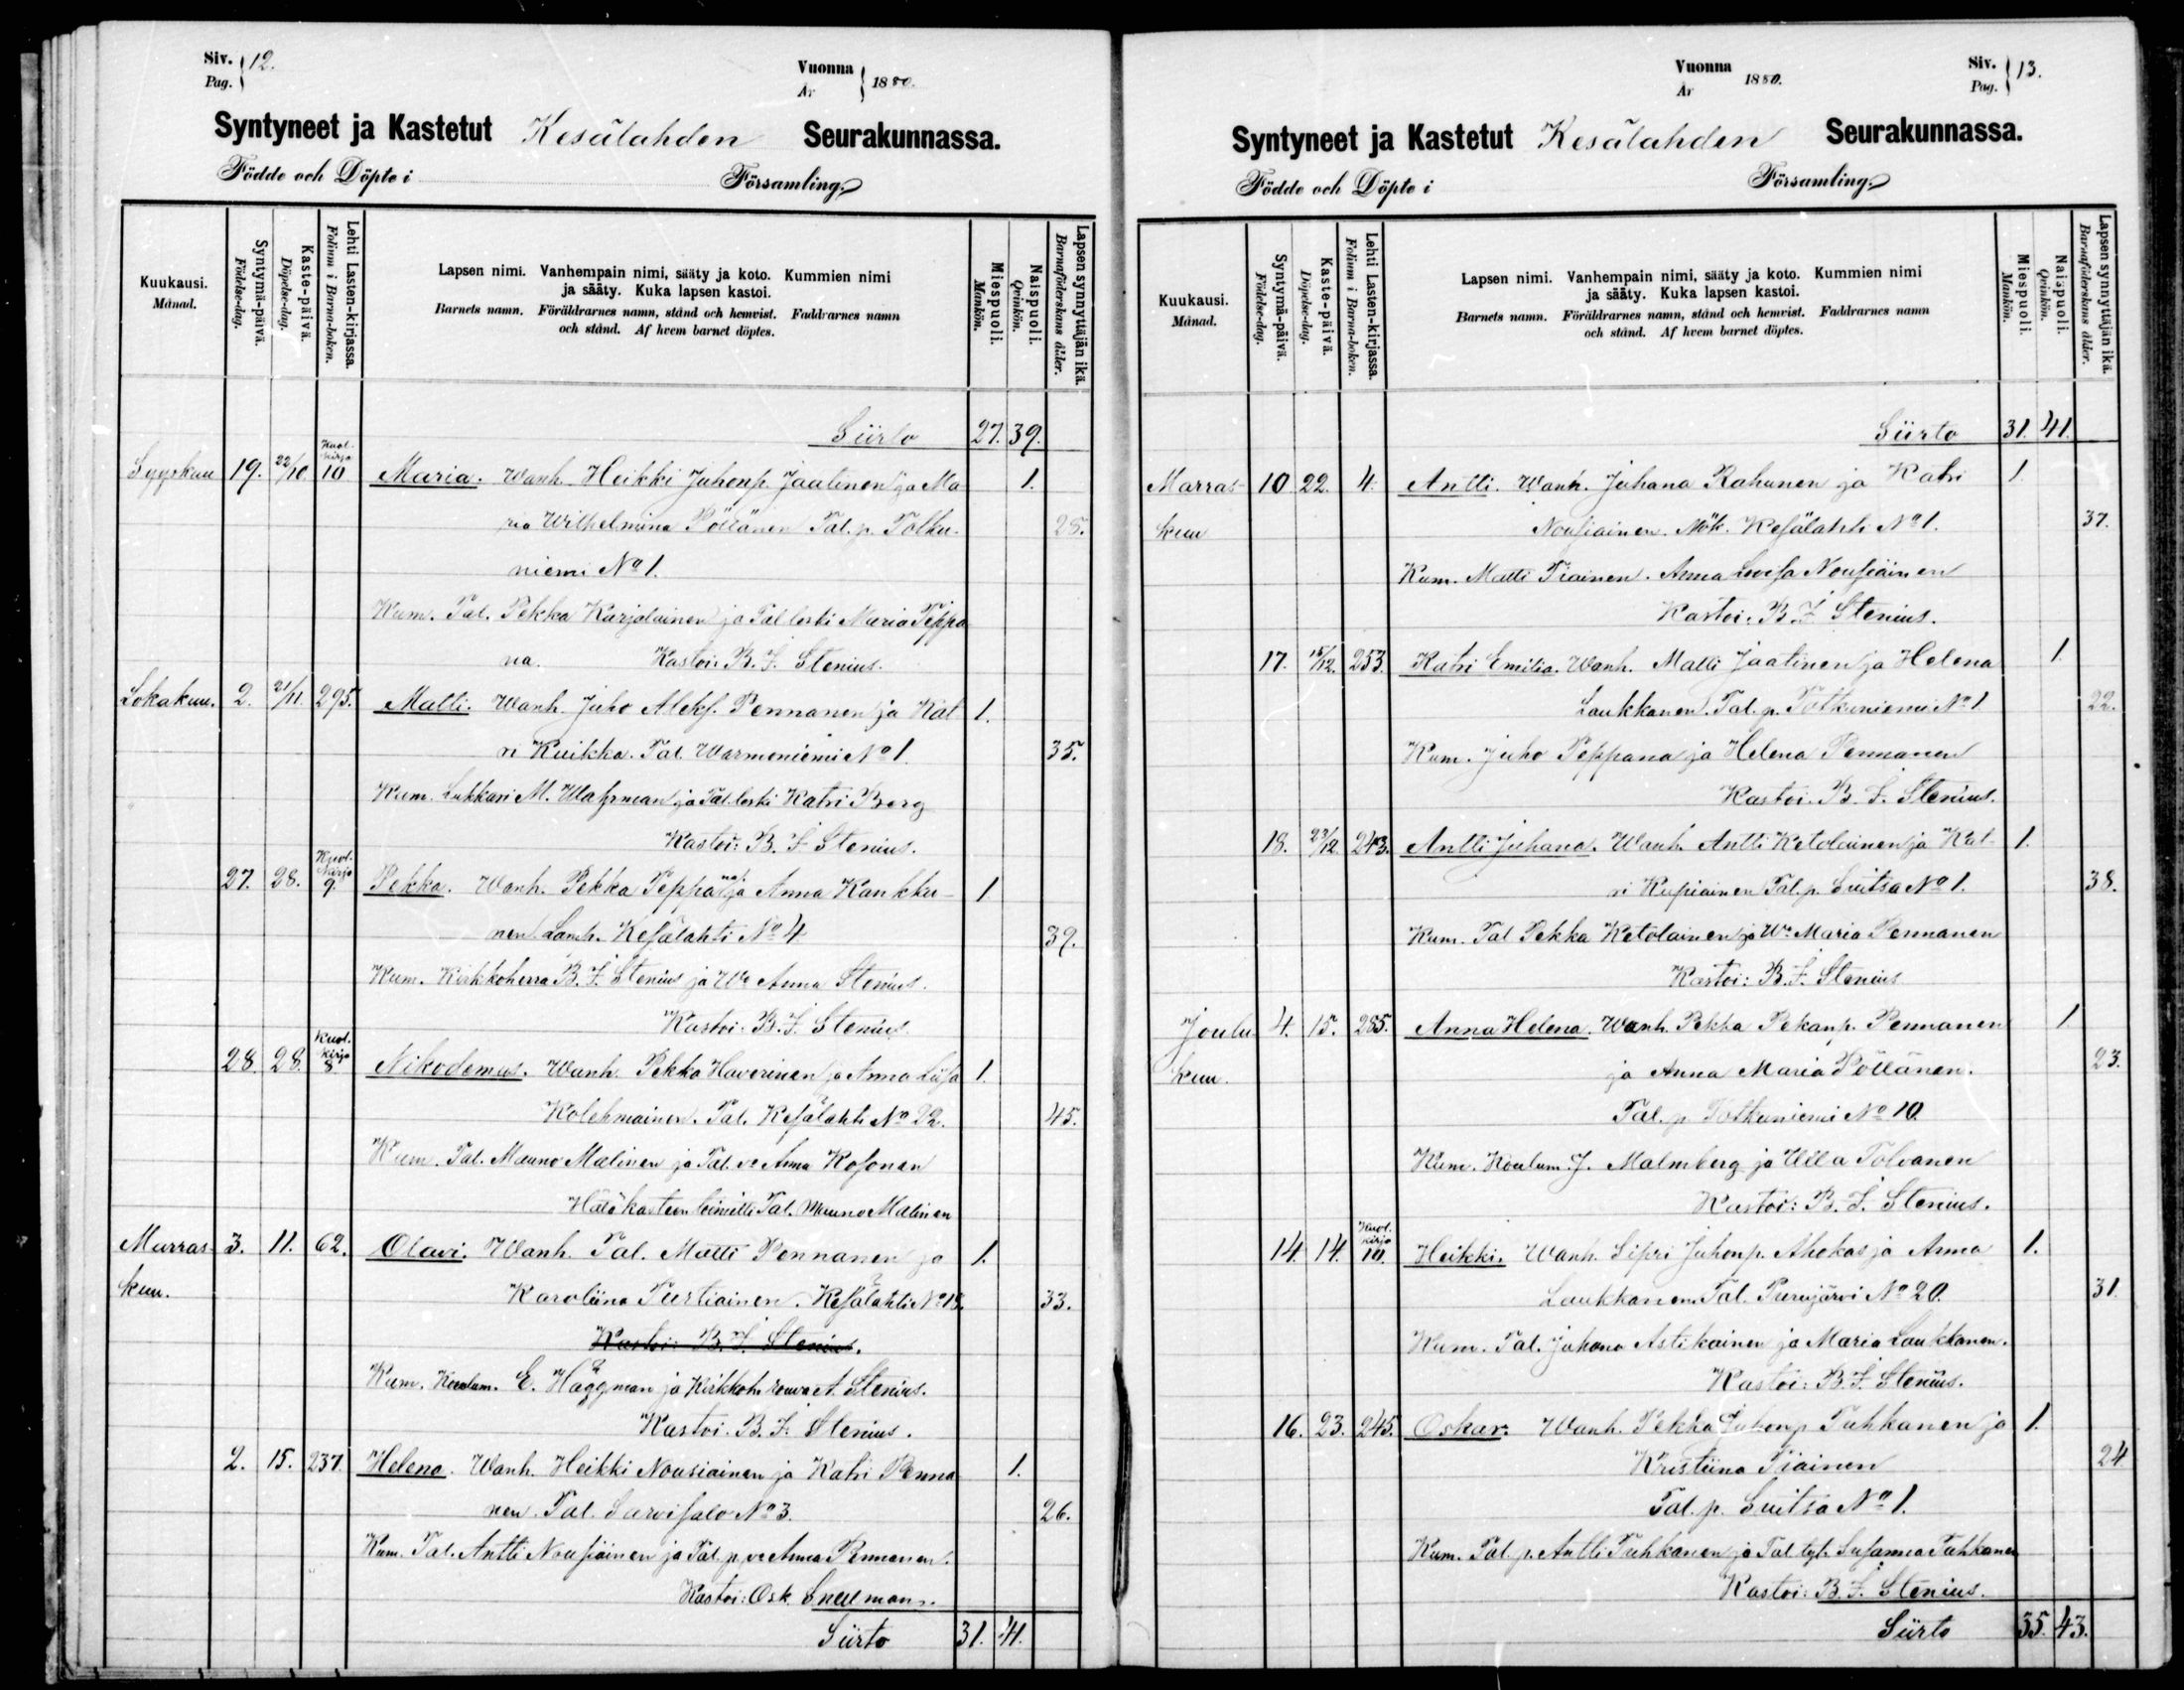 Siv. Pag. 12.
Vuonna År 1880.
Syntyneet ja Kastetut Kesälahden Seurakunnassa.
Födde och Döpte i Församling.
Kuukausi. Månad.
Syntymä-päivä. Födelse-dag.
Kaste-päivä. Döpelse-dag.
Lehti Lasten-kirjassa. Folium i Barna-boken.
Lapsen nimi. Vanhempain nimi, sääty ja koto. Kummien nimi
ja sääty. Kuka lapsen kastoi.
Barnets namn. Föräldrarnes namn, stånd och hemvist. Faddrarnes namn
och stånd. Af hvem barnet döptes.
Miespuoli. Mankön.
Naispuoli. Qvinkön.
Lapsen synnyttäjän ikä. Barnaföderskans ålder.
Siirto 27. 39.
Syyskuu 19. 22/10 Kuol. kirja 10 Maria. Wanh. Heikki Juhonp. Jaatinen ja Ma 1.
ria Wilhelmina Pöllänen Tal. p. Totku- 25.
niemi No 1.
Kum. Tal. Pekka Karjalainen ja Tal leski Maria Teppa
na. Kastoi: B. F. Stenius.
Lokakuu. 2. 21/11. 295. Matti. Wanh. Juho Aleks. Pennanen ja Kat 1.
ri Kuikka. Tal. Warmoniemi No 1. 35.
Kum. Lukkari M. Wahrman ja Tal. leski Katri Borg
Kastoi: B. F. Stenius.
27. 28. Kuol. kirja 9. Pekka. Wanh. Pekka Teppana ja Anna Kankku- 1
nen. Lamb. Kesälahti No 4 39.
Kum. Kirkkoherra B. F. Stenius ja Wo Anna Stenius.
Kastoi: B. F. Stenius.
28. 28. Kuol. kirja 8 Nikodemus. Wanh. Pekka Haverinen ja Anna Liisa 1.
Kolehmainen. Tal. Kesälahti No 22. 45.
Kum. Tal. Mauno Malinen ja Tal. vo Anna Kosonen
Hätäkasteen toimitti Tal. Mauno Malinen
Marras 3. 11. 62. Olavi. Wanh. Tal. Matti Pennanen ja 1.
kuu. Karoliina Turtiainen. Kesälahti No 15. 33.
Kastoi: B. F. Stenius.
Kum. Koulum. E. Häggman ja Kirkkoh. rouva A. Stenius.
Kastoi. B. F. Stenius.
2. 15. 237. Helena. Wanh. Heikki Nousiainen ja Katri Penna 1.
nen. Tal. Sarvisalo No 3. 26.
Kum. Tal. Antti Nousiainen ja Tal. p. vo Anna Pennanen.
Kastoi: Osk. Snellman.
Siirto 31. 41.
Vuonna År 1880.
Siv. Pag. 13.
Syntyneet ja Kastetut Kesälahden Seurakunnassa.
Födde och Döpte i Församling.
Kuukausi. Månad.
Syntymä-päivä. Födelse-dag.
Kaste-päivä. Döpelse-dag.
Lehti Lasten-kirjassa. Folium i Barna-boken.
Lapsen nimi. Vanhempain nimi, sääty ja koto. Kummien nimi
ja sääty. Kuka lapsen kastoi.
Barnets namn. Föräldrarnes namn, stånd och hemvist. Faddrarnes namn
och stånd. Af hvem barnet döptes.
Miespuoli. Mankön.
Naispuoli. Qvinkön.
Lapsen synnyttäjän ikä. Barnaföderskans ålder.
Siirto 31. 41.
Marras 10 22. 4. Antti. Wanh. Juhana Rahunen ja Katri 1.
kuu Nousiainen. Mök. Kesälahti No 1. 37.
Kum. Matti Tiainen. Anna Lovisa Nousiainen
Kastoi: B. F. Stenius.
17. 15/12. 253. Katri Emilia. Wanh. Matti Jaatinen ja Helena 1.
Laukkanen. Tal. p. Totkuniemi No 1 22.
Kum. Juho Teppana ja Helena Pennanen
Kastoi. B. F. Stenius.
18. 23/12. 243. Antti Juhana. Wanh. Antti Ketolainen ja Kat- 1.
ri Kupiainen Tal. p. Suitsa No 1. 38.
Kum. Tal Pekka Ketolainen ja Wo Maria Pennanen
Kastoi: B. F. Stenius
Joulu 4. 15. 285. Anna Helena. Wanh. Pekka Pekanp. Pennanen 1.
kuu. ja Anna Maria Pöllänen. 23.
Tal. p Totkuniemi No 10.
Kum. Koulum. J. Malmberg ja Ulla Tolvanen
Kastoi: B. F. Stenius.
14. 14. Kuol. kirja 10. Heikki. Wanh. Sipri Juhonp. Ahokas ja Anna 1.
Laukkanen. Tal. Purujärvi No 20. 31.
Kum. Tal. Juhana Astikainen ja Maria Laukkanen.
Kastoi: B. F. Stenius.
16. 23. 245. Oskar. Wanh. Pekka Juhonp Tuhkanen ja 1.
Kristiina Tiainen 24
Tal. p. Suitsa No 1.
Kum. Tal. p. Antti Tuhkanen ja Tal. tyt. Susanna Tuhkanen
Kastoi: B. F. Stenius.
Siirto 35. 43.